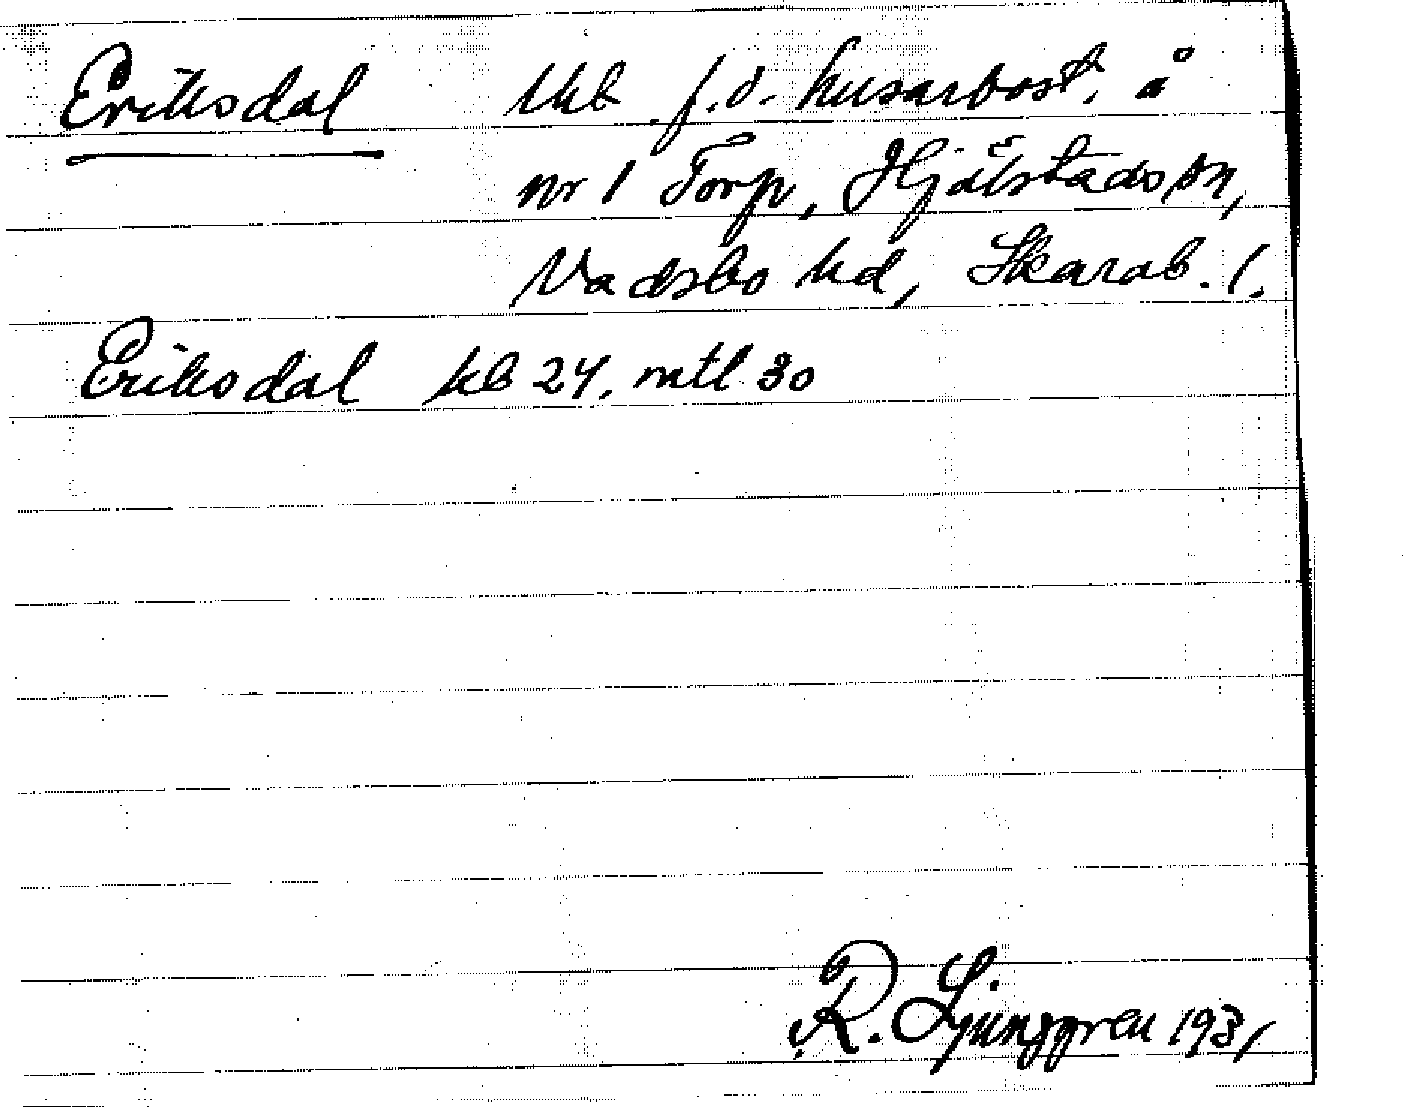 Eriksdal Ukb f.d. husarbost. å
nr 1 Torp, Hjälstads sn,
Vadsbo hd, Skarab. l.
Eriksdal kb 24, mtl 30
R. Ljunggren 1931